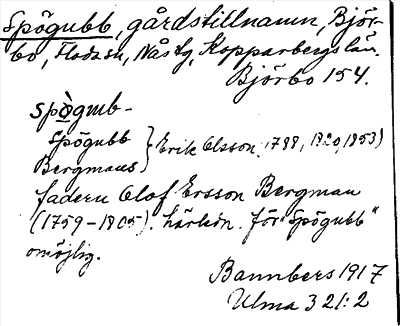 Spögubb, gårdstillnamn, Björ-
bo, Floda sn, Nås tg, Kopparbergs län.
Björbo 154.
spògub-
Spögubb
Bergmans } Erik Olsson, 1788, 1820, 1853)
fadern Olof Ersson Bergman
(1759-1805). härledn. för "Spögubb"
omöjlig.
Bannbers 1917
Ulma 321:2